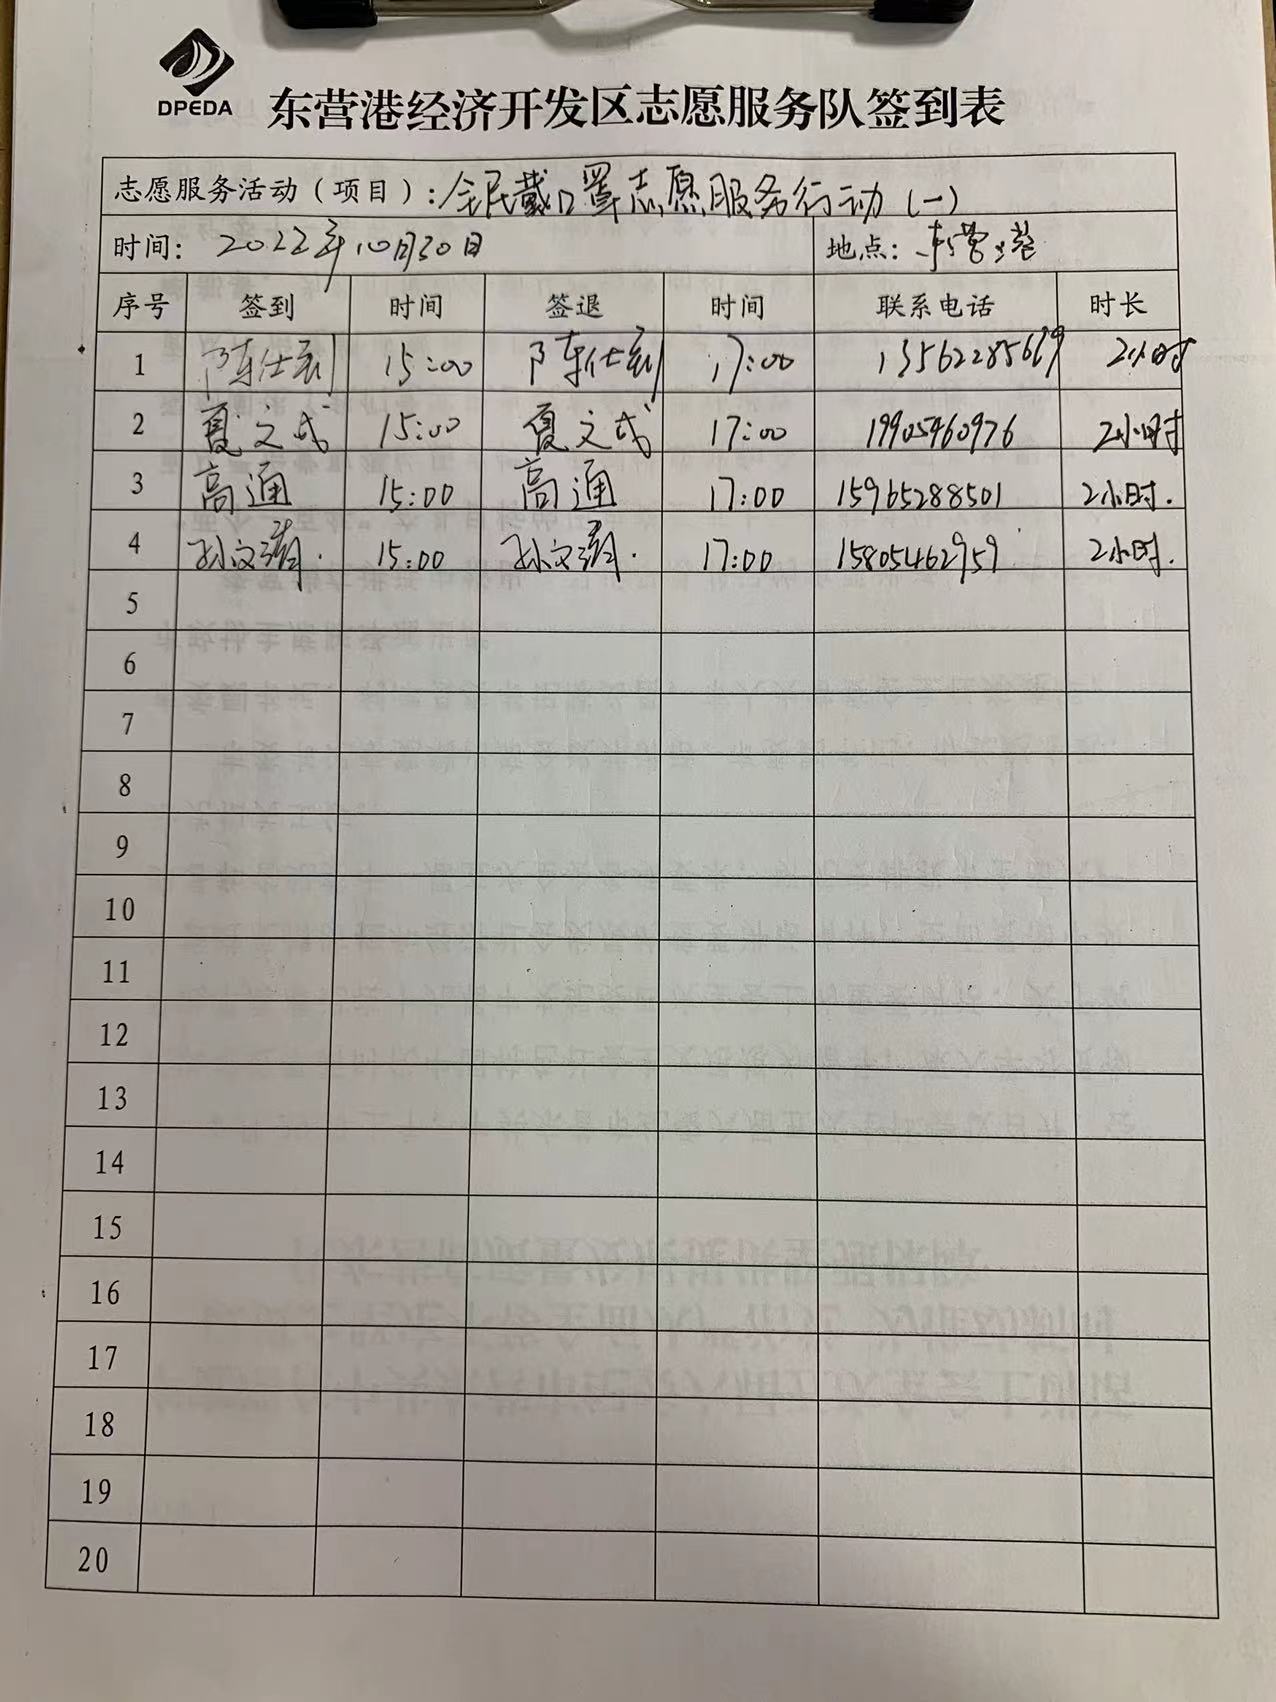 DPEDA
东营港经济开发区志愿服务队签到表
志愿服务活动(项目):全民戴口罩志愿服务行动(一)
时间: 2022年10月30日 地点: 东营港
序号 签到 时间 签退 时间 联系电话 时长
1 陈仕利 15:00 陈仕利 17:00 2小时
2 夏文成 15:00 夏文成 17:00 19905460976 2小时
3 高通 15:00 高通 17:00 15965288501 2小时.
4 孙文 15:00 孙文 17:00 15805462959 2小时.
5
6
7
8
9
10
11
12
13
14
15
16
17
18
19
20